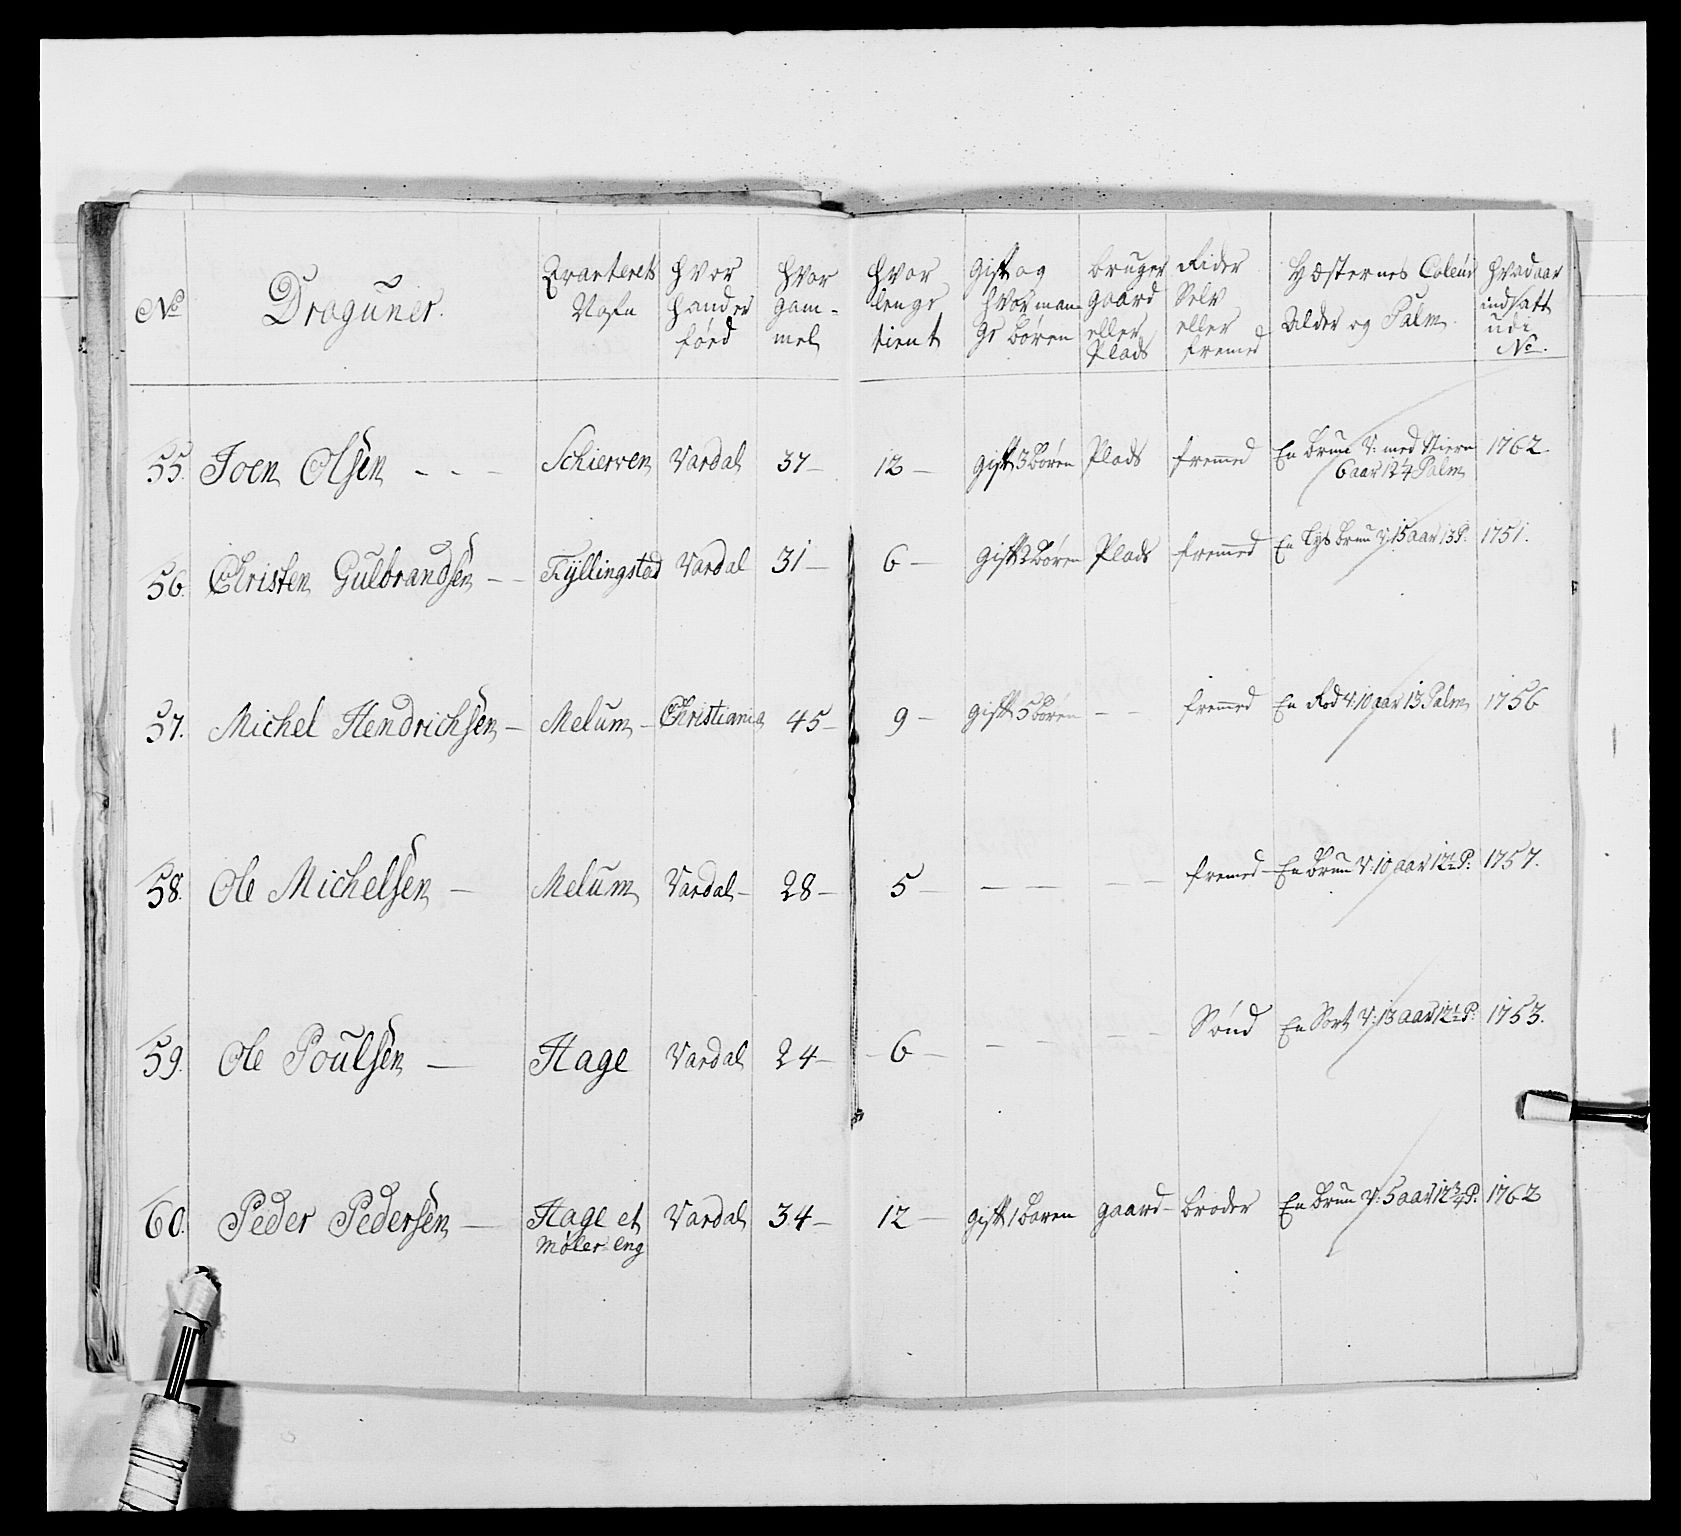 No Draguner. Qvarterets Nafn hvor hand er föed hvor gam- mel hvor lenge tient gift og hvor man ge Børen bruger gaard eller Plads Rider Selv eller fremed Hæsternes Coleur Alder og Palm. hvad aar indsatt udi No.
55. Joen Olsen - - - Schierven Vardal 37 - 12 - gift 3 børen Plads fremed En brun V: med Stiern 6 aar 12 1/4 Palm 1762.
56. Christen Gulbrandsen - - Fyllingstad Vardal 31 - 6 - gift 2 børen Plads fremed En lys brun V: 15 aar 13 P. 1751.
57. Michel Hendrichsen - Melum - Christiania 45 - 9 - gift 5 børen - - fremed En Rod V: 10 aar 13 Palm 1756
58. Ole Michelsen - Melum Vardal - 28 - 5 - - - - - fremed - En brun V: 10 aar 12 1/2 P: 1757.
59. Ole Poulsen - Hage Vardal 24 - - 6 - - - - - Sönd En Sort V: 13 aar 12 1/2 P: 1753.
60. Peder Pedersen - Hage et Møler Eng Vardal 34 - 12 - gift 1 baren gaard - broder En brun V: 5 aar 12 3/4 P. 1762